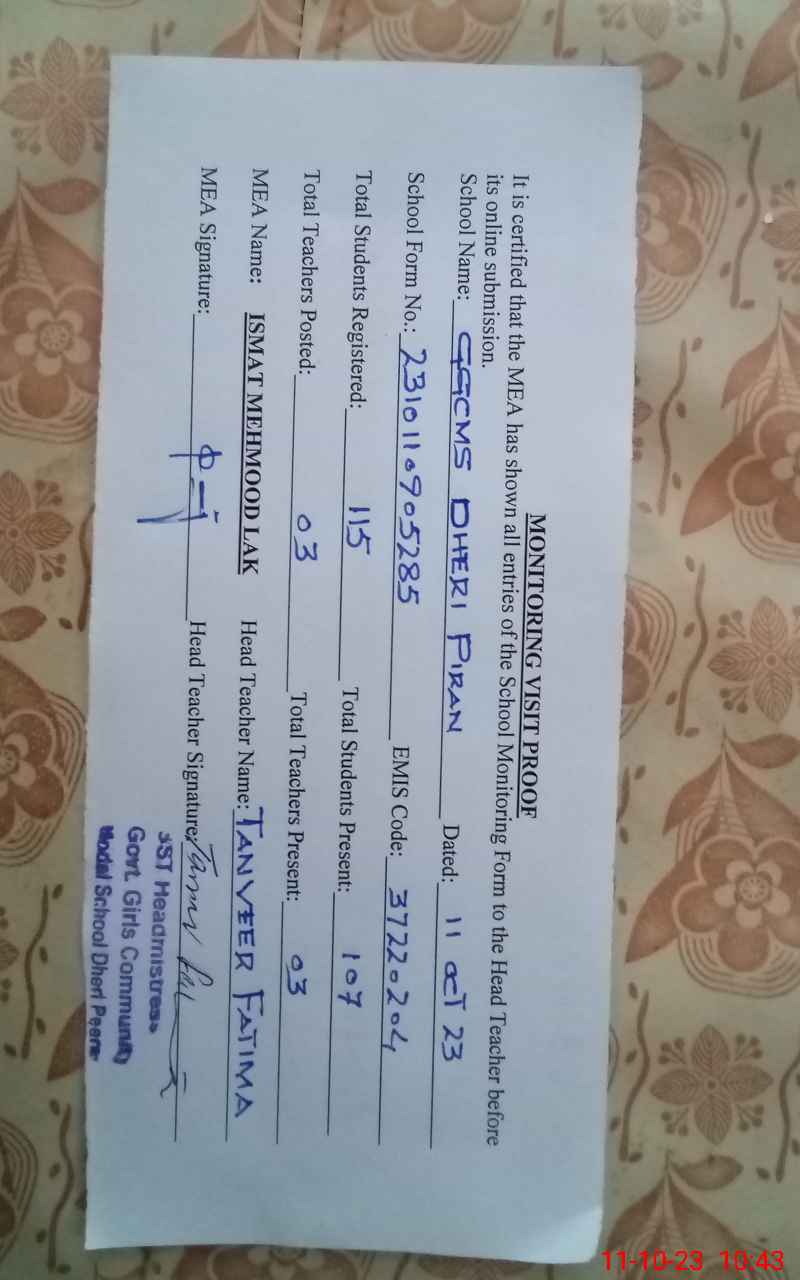 MONITORING VISIT PROOF
It is certified that the MEA has shown all entries of the School Monitoring Form to the Head Teacher before
its online submission.
School Name: GGCMS DHERI PIRAN Dated: 11 OCT 23
School Form No.: 2310110905285 EMIS Code: 37220204
Total Students Registered: 115 Total Students Present: 107
Total Teachers Posted: 03 Total Teachers Present: 03
MEA Name: ISMAT MEHMOOD LAK Head Teacher Name: TANVEER FATIMA
MEA Signature: Head Teacher Signature:
SST Headmistress
Govt. Girls Community
Model School Dheri Peeran
11-10-23 10:43